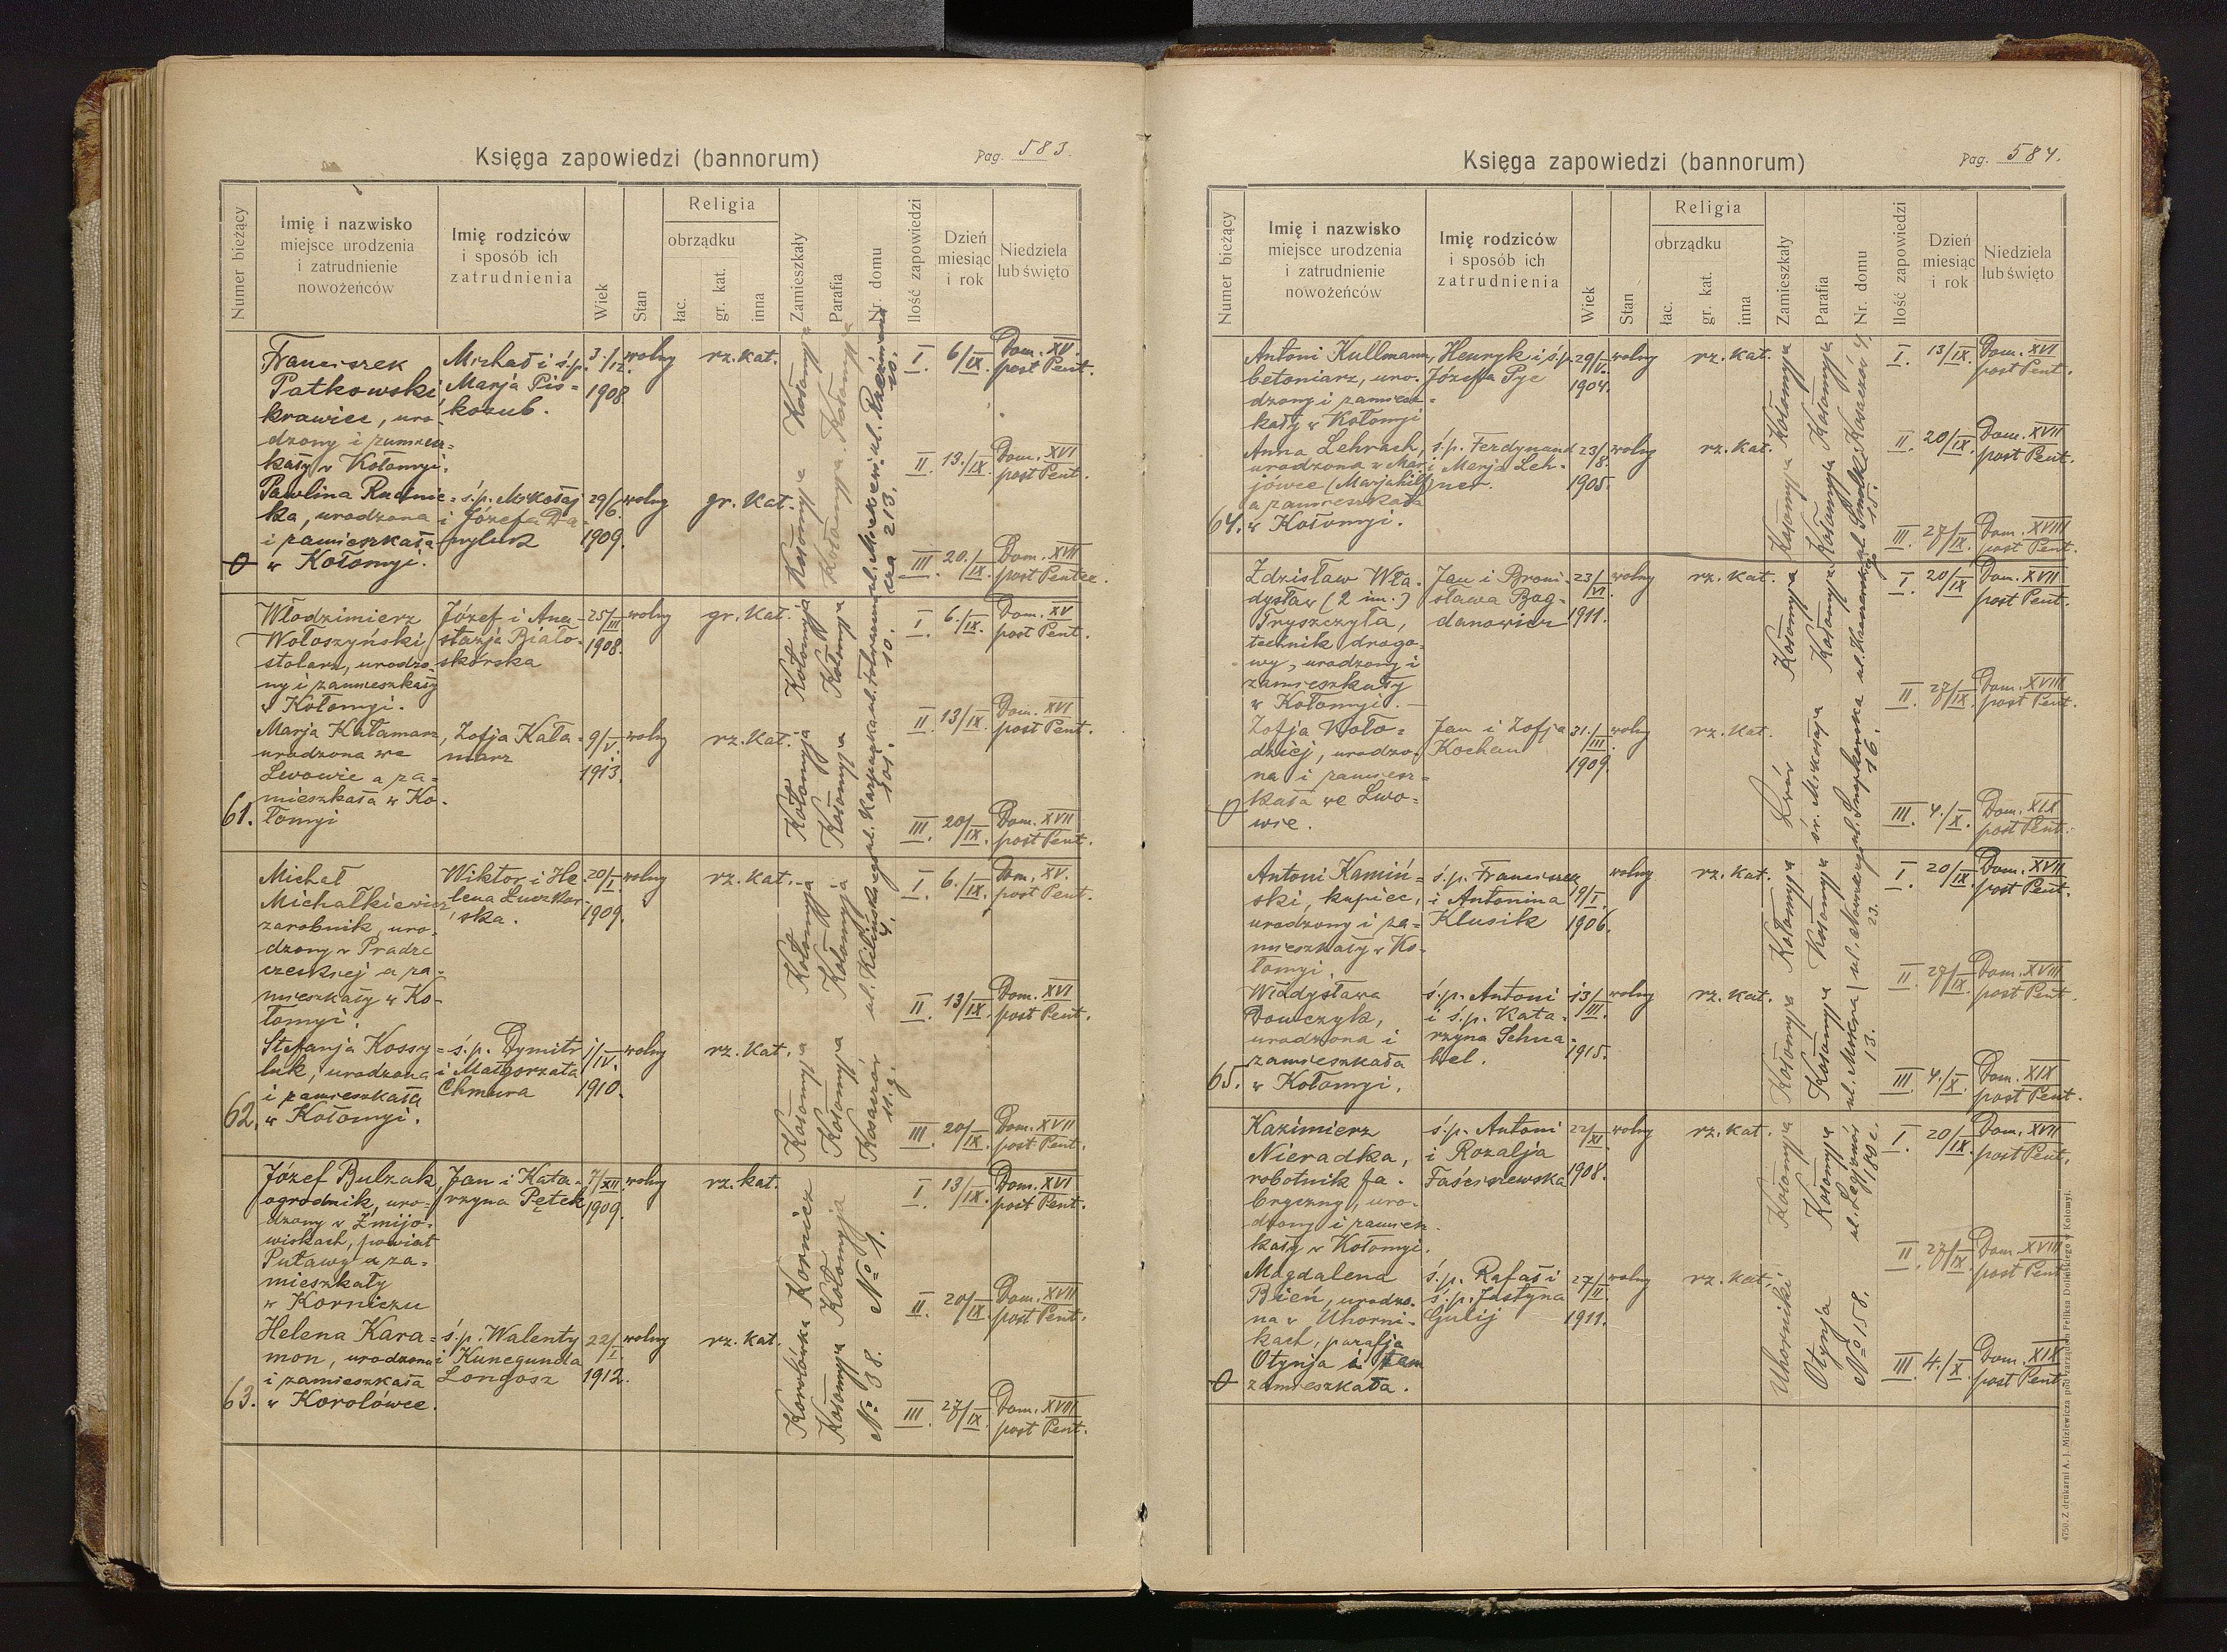 Księga zapowiedzi (bannorum)
Pag. 583.
Numer bieżący
Imię i nazwisko
miejsce urodzenia
i zatrudnienie
nowożeńców
Imię rodziców
i sposób ich
zatrudnienia
Wiek
Stan
Religia
obrządku
łac.
gr. kat.
inna
Zamieszkały
Parafia
Nr. domu
Ilość zapowiedzi
Dzień
miesiąc
i rok
Niedziela
lub święto
Franciszek
Patkowski,
krawiec, uro-
dzony i zamiesz-
kały w Kołomyi.
Michał i ś.p.
Marja Pis-
kozub.
3./12.
1908.
wolny
rz. kat.
Kołomyja
Kołomyja
I. 6/IX. Dom. XV.
post Pent.
II. 13./IX. Dom. XVI
post Pent.
Pawlina Rudnic-
ka, urodzona
i zamieszkała
w Kołomyi.
ś.p. Mikołaj
i Józefa Da-
nyluk
29/6.
1909.
wolny
gr. Kat.
Kołomyja
Kołomyja
213.
III. 20./IX. Dom. XVII
post Pentec.
Włodzimierz
Wołoszyński,
stolarz, urodzo-
ny i zamieszkały
w Kołomyi.
Józef i Ana-
stazja Biało-
skórska
25/III
1908.
wolny
gr. Kat.
Kołomyja
Kołomyja
10.
I. 6./IX. Dom. XV
post Pent.
II. 13/IX. Dom. XVI
post Pent.
61.
Marja Kałamarz,
urodzona we
Lwowie a za-
mieszkała w Ko-
łomyi
Zofja Kała-
marz
9/V.
1913.
wolny
rz. Kat.
Kołomyja
Kołomyja
ul. Karpacka
101.
III. 20/IX. Dom. XVII
post Pent.
Michał
Michałkiewicz
zarobnik, uro-
dzony w Pradze
czeskiej a za-
mieszkały w Ko-
łomyi.
Wiktor i He-
lena Łuczkow-
ska.
20/I.
1909.
wolny
rz. kat.
Kołomyja
Kołomyja
ul. Kilińskiego
4.
I. 6./IX. Dom. XV.
post Pent.
II. 13/IX. Dom. XVI
post Pent.
62.
Stefanja Kossy-
luk, urodzona
i zamieszkała
w Kołomyi.
ś.p. Dymitr
i Małgorzata
Chmura
1/IV.
1910.
wolny
rz. Kat.
Kołomyja
Kołomyja
Kosaczów
11.g.
III. 20/IX. Dom. XVII
post Pent.
Józef Bulzak,
ogrodnik, uro-
dzony w Żmijo-
wiskach, powiat
Puławy a za-
mieszkały
w Korniczu
Jan i Kata-
rzyna Pętek
7/XII.
1909.
wolny
rz. kat.
Kornicz
Kołomyja
No 1.
I. 13/IX. Dom. XVI
post Pent.
II. 20/IX. Dom. XVII
post Pent.
63.
Helena Kara-
mon, urodzona
i zamieszkała
w Korolówce.
ś.p. Walenty
i Kunegunda
Longosz
22/I.
1912.
wolny
rz. kat.
Korolówka
Kołomyja
No 38.
III. 27/IX. Dom. XVIII
post Pent.
Księga zapowiedzi (bannorum)
Pag. 584.
Numer bieżący
Imię i nazwisko
miejsce urodzenia
i zatrudnienie
nowożeńców
Imię rodziców
i sposób ich
zatrudnienia
Wiek
Stan
Religia
obrządku
łac.
gr. kat.
inna
Zamieszkały
Parafia
Nr. domu
Ilość zapowiedzi
Dzień
miesiąc
i rok
Niedziela
lub święto
Antoni Kullmann,
betoniarz, uro-
dzony i zamiesz-
kały w Kołomyi
Henryk i ś.p.
Józefa Pyc
29/V.
1904.
wolny
rz. kat.
Kołomyja
Kołomyja
I. 13/IX. Dom. XVI
post Pent.
II. 20/IX. Dom. XVII
post Pent.
64.
Anna Lehrach,
urodzona w Mar-
jówce (Marjahilf)
a zamieszkała
w Kołomyi.
ś.p. Ferdynand
i Marja Leh-
ner.
23/8.
1905.
wolny
rz. Kat.
Kołomyja
Kołomyja
15.
III. 27/IX. Dom. XVIII
post Pent.
Zdzisław Wła-
dysław (2 im.)
Tryszczyła,
technik drogo-
wy, urodzony i
zamieszkały
w Kołomyi.
Jan i Broni-
sława Bog-
danowicz
23/VI.
1911.
wolny
rz. kat.
Kołomyja
Kołomyja
I. 20/IX. Dom. XVII
post Pent.
II. 27/IX. Dom. XVIII
post Pent.
Zofja Woło-
dziej, urodzo-
na i zamiesz-
kała we Lwo-
wie.
Jan i Zofja
Kochan
31./III
1909.
wolny
rz. kat.
Lwów
św. Mikołaja
ul. Snopkowska
16.
III. 4./X. Dom. XIX
post Pent.
Antoni Kamiń-
ski, kupiec,
urodzony i za-
mieszkały w Ko-
łomyi.
ś.p. Franciszek
i Antonina
Klusik
19/I.
1906.
wolny
rz. kat.
Kołomyja
Kołomyja
23.
I. 20/IX. Dom. XVII
post Pent.
II. 27/IX. Dom. XVIII
post Pent.
65.
Władysława
Dowczyk,
urodzona i
zamieszkała
w Kołomyi.
ś.p. Antoni
i ś.p. Kata-
rzyna Schna-
bel.
13/III.
1915.
wolny
rz. kat.
Kołomyja
Kołomyja
ul. Mokra
13.
III. 4./X. Dom. XIX
post Pent.
Kazimierz
Nieradka,
robotnik fa-
bryczny, uro-
dzony i zamiesz-
kały w Kołomyi.
ś.p. Antoni
i Rozalja
Faściszewska
22/XI
1908.
wolny
rz. kat.
Kołomyja
Kołomyja
ul. Legjonów
I. 20/IX. Dom. XVII
post Pent.
II. 27/IX. Dom. XVIII
post Pent.
Magdalena
Bień, urodzo-
na w Uhorni-
kach, parafja
Otynja i tam
zamieszkała.
ś.p. Rafał i
ś.p. Justyna
Gulij
27/II.
1911.
wolny
rz. kat.
Uhorniki
Otynja
No 158.
III. 4./X. Dom. XIX
post Pent.
4750. Z drukarni A. J. Miziewicza pod zarządem Feliksa Dolińskiego w Kołomyi.